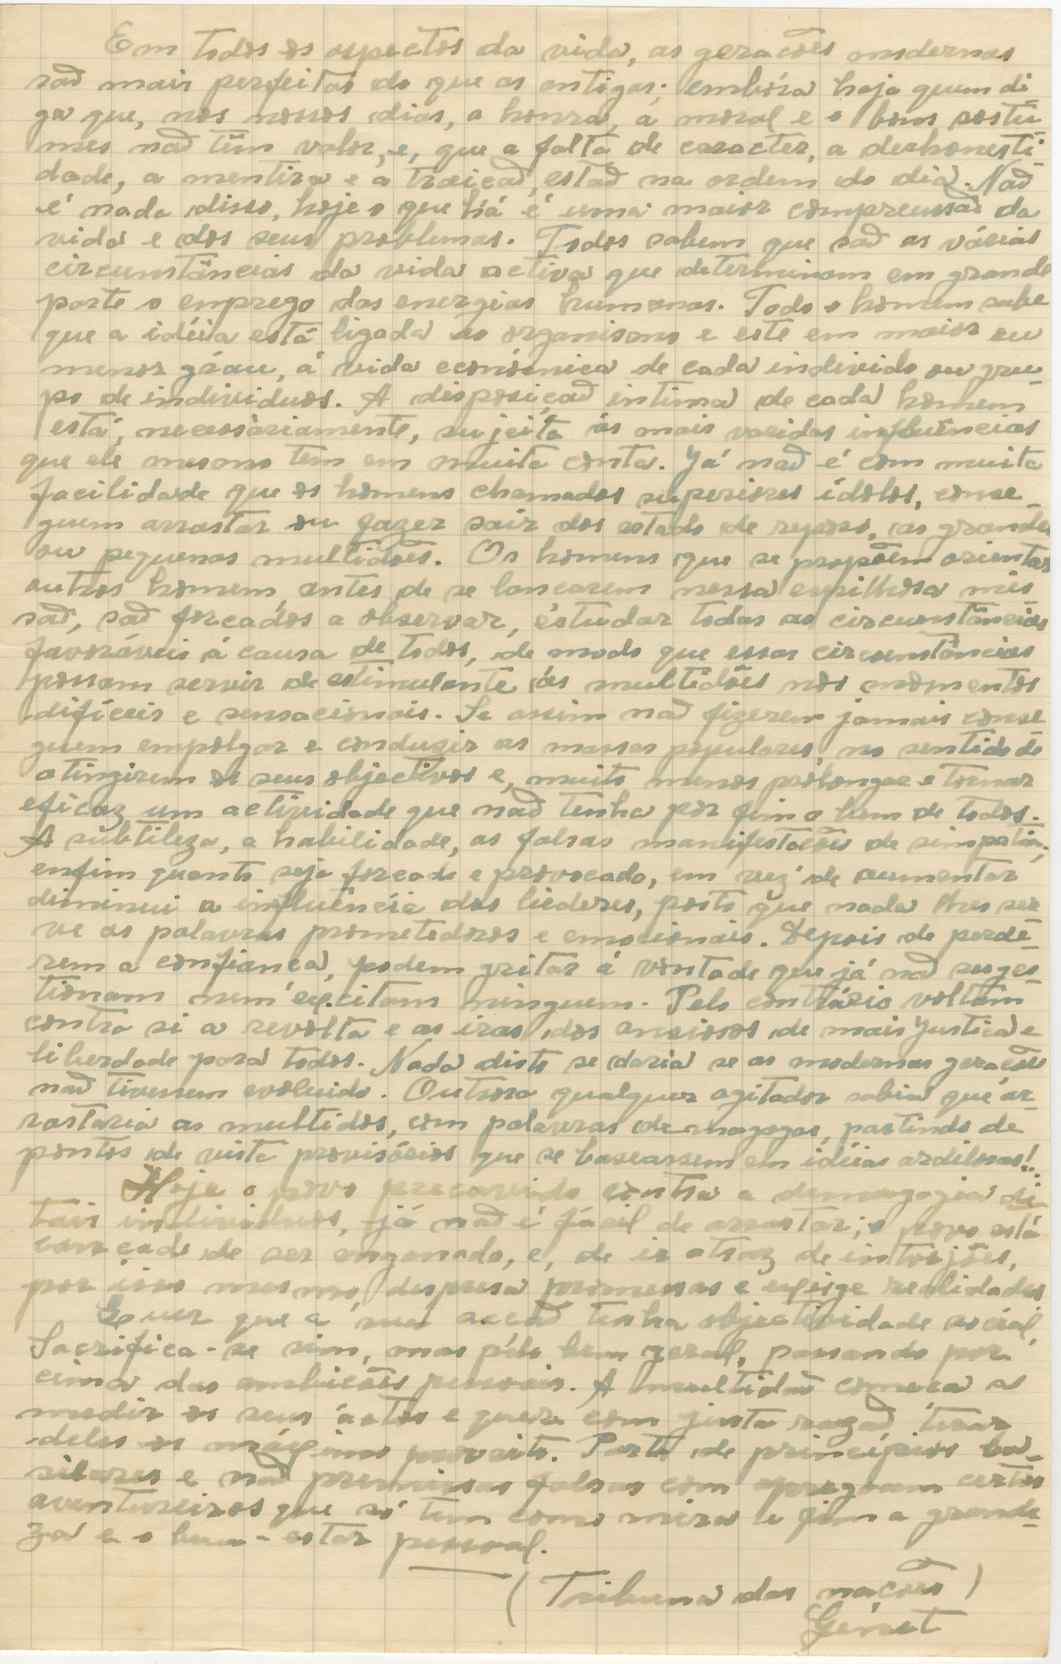 Em todos os aspectos da vida, as gerações modernas
são mais perfeitas do que as antigas; embóra haja quem di
ga que, nos nossos dias, a honra, a moral e o bons costu
mes não têm valor, e, que a falta de caracter, a deshonesti-
dade, a mentira e a traição, estão na ordem do dia. Não
é nada disso, hoje o que há é uma maior compreensão da
vida e dos seus problemas. Todos sabem que são as várias
circunstâncias da vida activa que determinam em grande
parte o emprego das energias humanas. Todo o homem sabe
que a idéia está ligada ao organismo e este em maior ou
menor gráu, á vida económica de cada individo ou gru-
po de individuos. A disposição intima de cada homem
está, necessáriamente, sujeita ás mais variadas influências
que ele mesmo tem em muita conta. Já não é com muita
facilidade que os homens chamados superiores idolos, conse
guem arrastar ou fazer sair dos estado de repouso, as grandes
ou pequenas multidões. Os homens que se propõem orientar
outros homem, antes de se lançarem nessa espinhosa mis
são, são forçados a observar, estudar todas as circunstâncias
favoráveis á causa de todos, de modo que essas circunstâncias
possam servir de estimulante ás multidões nos momentos
difíceis e sensacionais. Se assim não fizerem jamais conse
guem empolgar e conduzir as massas populares, no sentido de
atingirem os seus objectivos e, muito menos prolongar e tornar
eficaz um actividade que não tenha por fim o bem de todos.
A subtileza, a habilidade, as falsas manifestações de simpatia,
enfim quanto seja forçado e provocado, em vez de aumentar
diminui a influência dos lideres, posto que nada lhes ser
ve as palavras prometedoras e emocionais. Depois de perde-
rem a confiança, podem gritar á vontade que já não suges
tionam nem excitam ninguem. Pelo contrário voltam
contra si a revolta e as iras dos ansiosos de mais justiça e
liberdade para todos. Nada disto se daria se as modernas gerações
não tivessem evoluido. Outrora qualquer agitador sabia que ar
rastaria as multidos, com palavras demagogas, partindo de
pontos de vista provisórios que se baseassem em idéias ardilosas!..
Hoje o povo precavido contra a demagogia di
tais individuos, já não é fácil de arrastar; o povo está
cançado de ser enganado, e, de ir atraz de intrujões,
por isso mesmo, despresa promessas e exige realidades
Quer que a sua acção tenha objectividade social,
Sacrifica-se sim, mas pélo bem geral, passando por
cima das ambições pessoais. A multidão começa a
medir os seus áctos e quere com justa razão tirar
deles os máximo proveito. Parte de princípios ba
silares e não premissas falsas com apregoam certos
aventureiros que só tem como mira e fim a grande-
za e o bem-estar pessoal.
(Tribuna das nações)
Génet